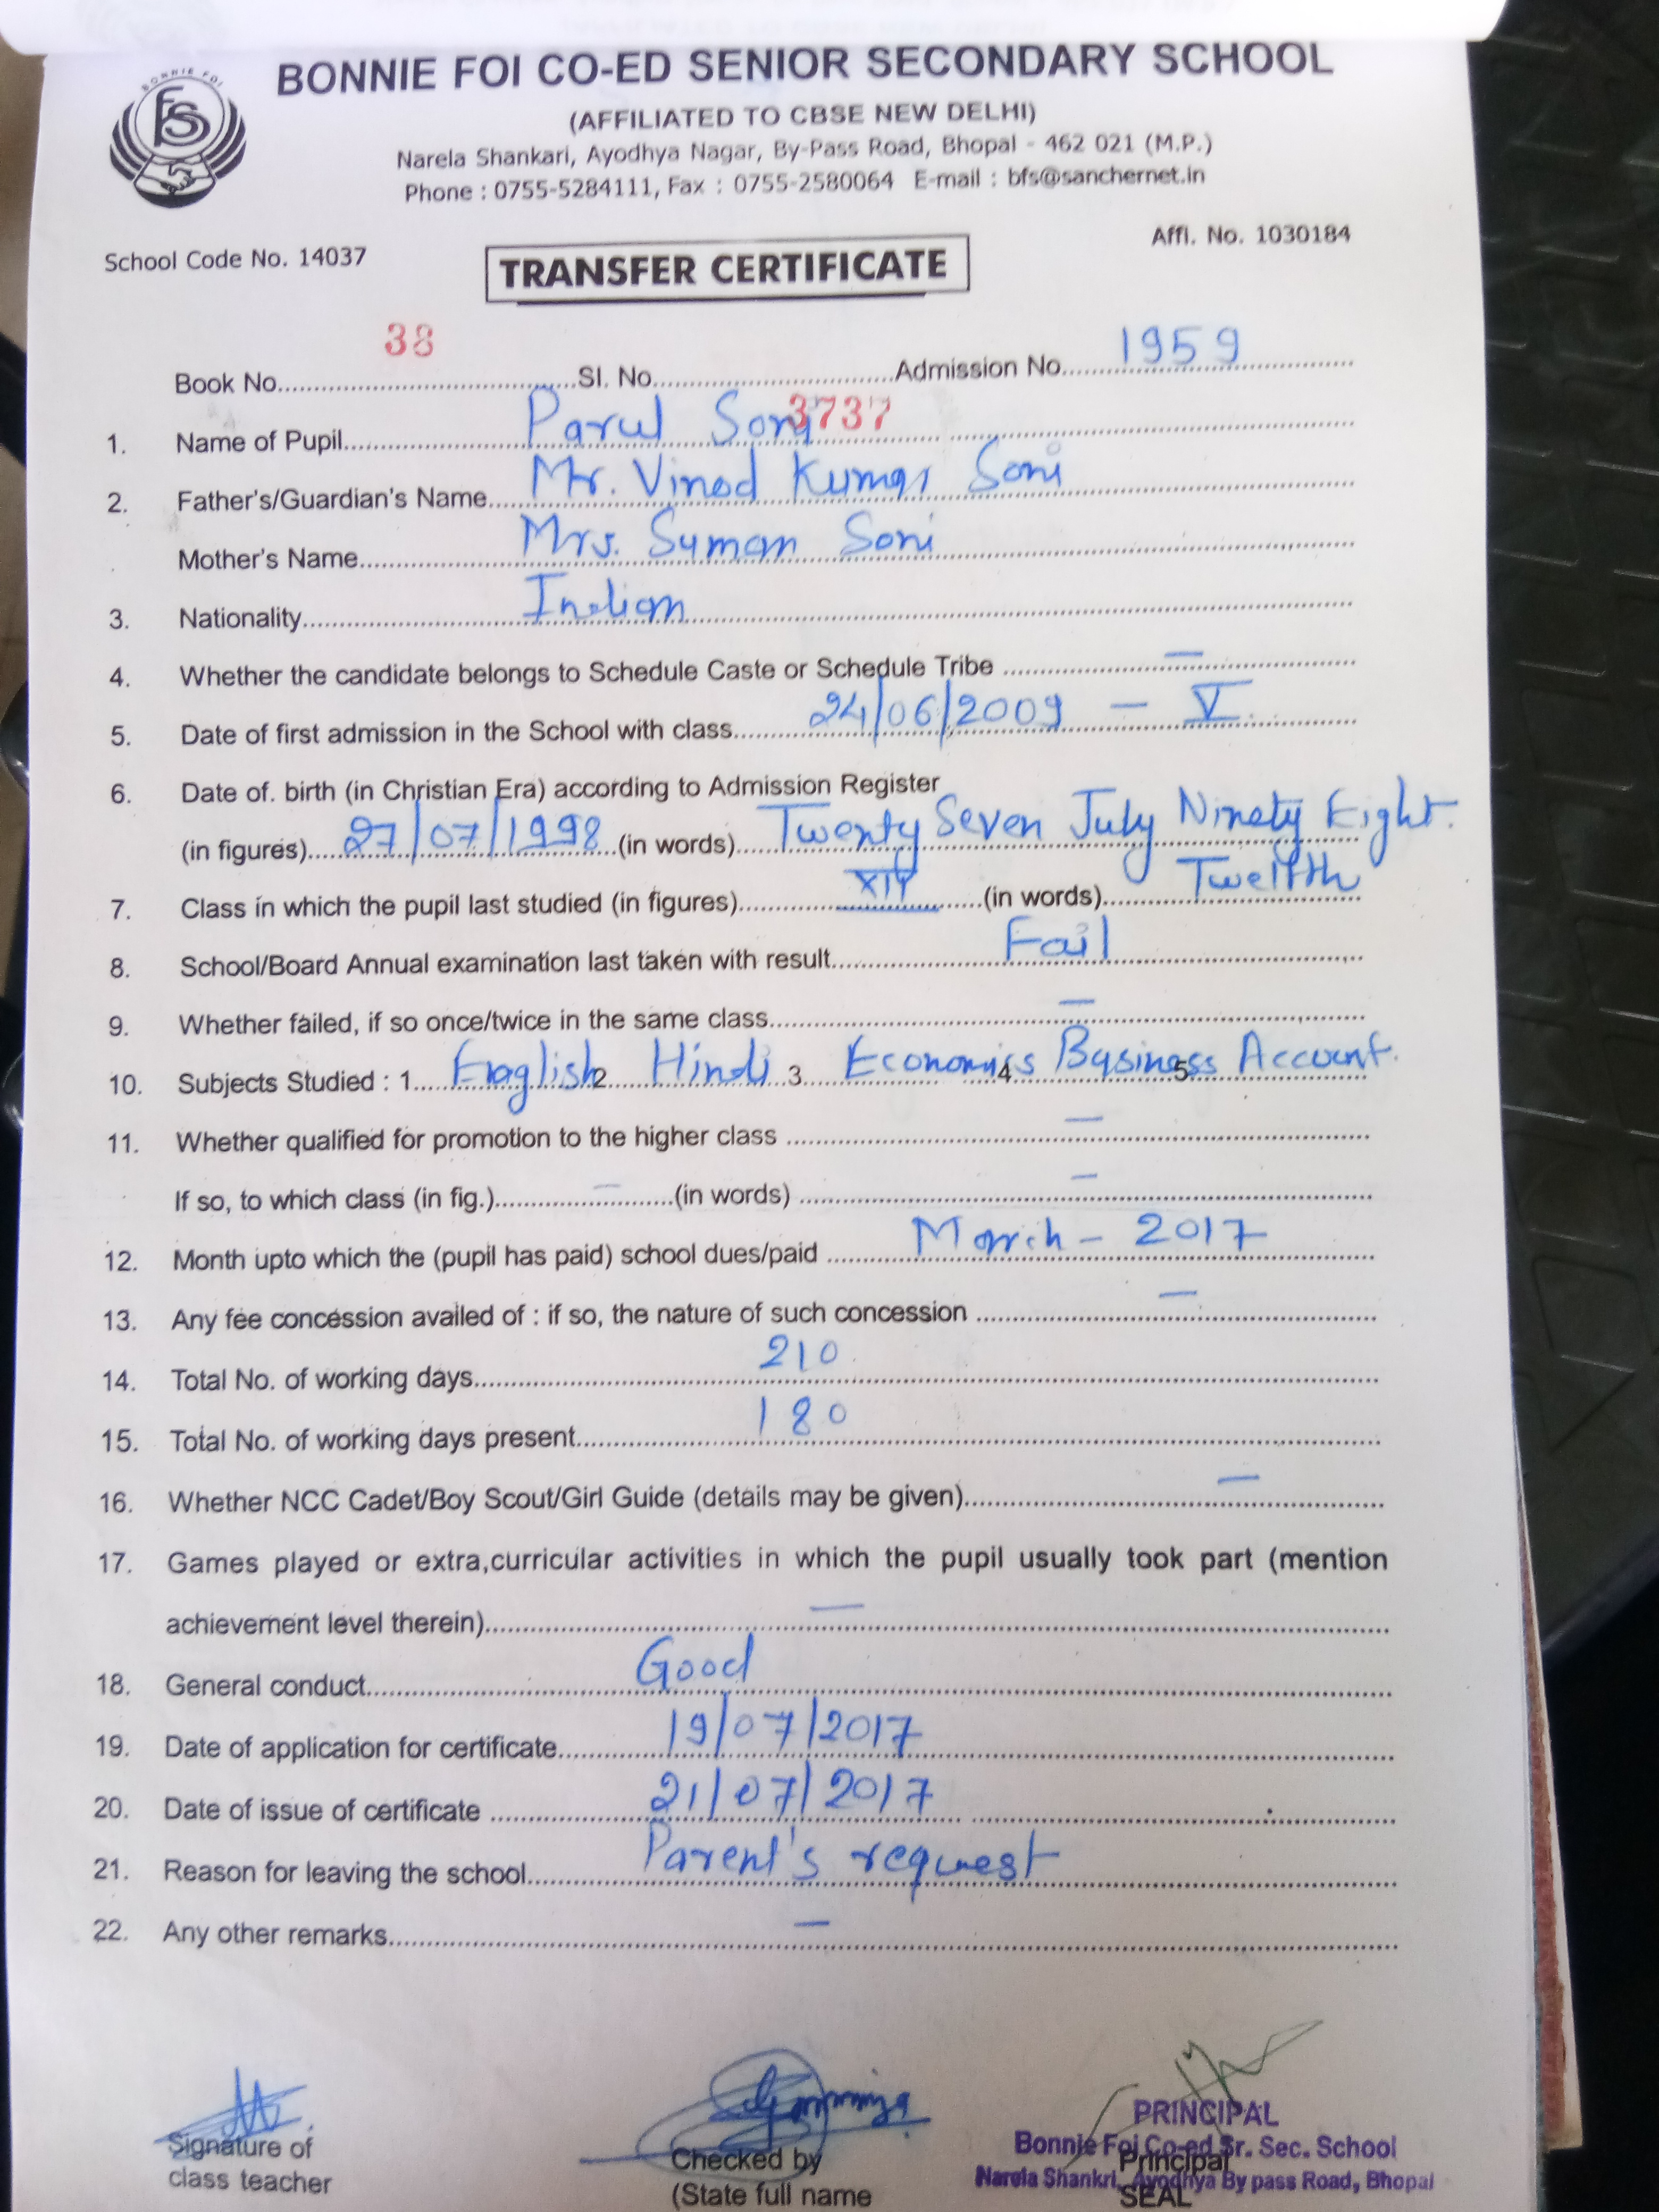 BONNIE FOI
FS
BONNIE FOI CO-ED SENIOR SECONDARY SCHOOL
(AFFILIATED TO CBSE NEW DELHI)
Narela Shankari, Ayodhya Nagar, By-Pass Road, Bhopal - 462 021 (M.P.)
Phone : 0755-5284111, Fax : 0755-2580064 E-mail : bfs@sanchernet.in
School Code No. 14037
Affi. No. 1030184
TRANSFER CERTIFICATE
Book No. 38 Sl. No. 3737 Admission No. 1959
1. Name of Pupil Parul Soni
2. Father's/Guardian's Name Mr. Vinod Kumar Soni
Mother's Name Mrs. Suman Soni
3. Nationality Indian
4. Whether the candidate belongs to Schedule Caste or Schedule Tribe —
5. Date of first admission in the School with class 24/06/2009 — V
6. Date of. birth (in Christian Era) according to Admission Register
(in figures) 27/07/1998 (in words) Twenty Seven July Ninety Eight.
7. Class in which the pupil last studied (in figures) (in words) Twelfth
8. School/Board Annual examination last taken with result Fail
9. Whether failed, if so once/twice in the same class —
10. Subjects Studied : 1 English 2 Hindi 3 Economics 4 Business 5 Account.
11. Whether qualified for promotion to the higher class —
If so, to which class (in fig.) — (in words) —
12. Month upto which the (pupil has paid) school dues/paid March - 2017
13. Any fee concession availed of : if so, the nature of such concession —
14. Total No. of working days 210
15. Total No. of working days present 180
16. Whether NCC Cadet/Boy Scout/Girl Guide (details may be given) —
17. Games played or extra,curricular activities in which the pupil usually took part (mention
achievement level therein) —
18. General conduct Good
19. Date of application for certificate 19/07/2017
20. Date of issue of certificate 21/07/2017
21. Reason for leaving the school Parent's request
22. Any other remarks —
Signature of
class teacher
Checked by
(State full name
PRINCIPAL
Bonnie Foi Co-ed Sr. Sec. School
Narela Shankri, Ayodhya By pass Road, Bhopal
Principal
SEAL